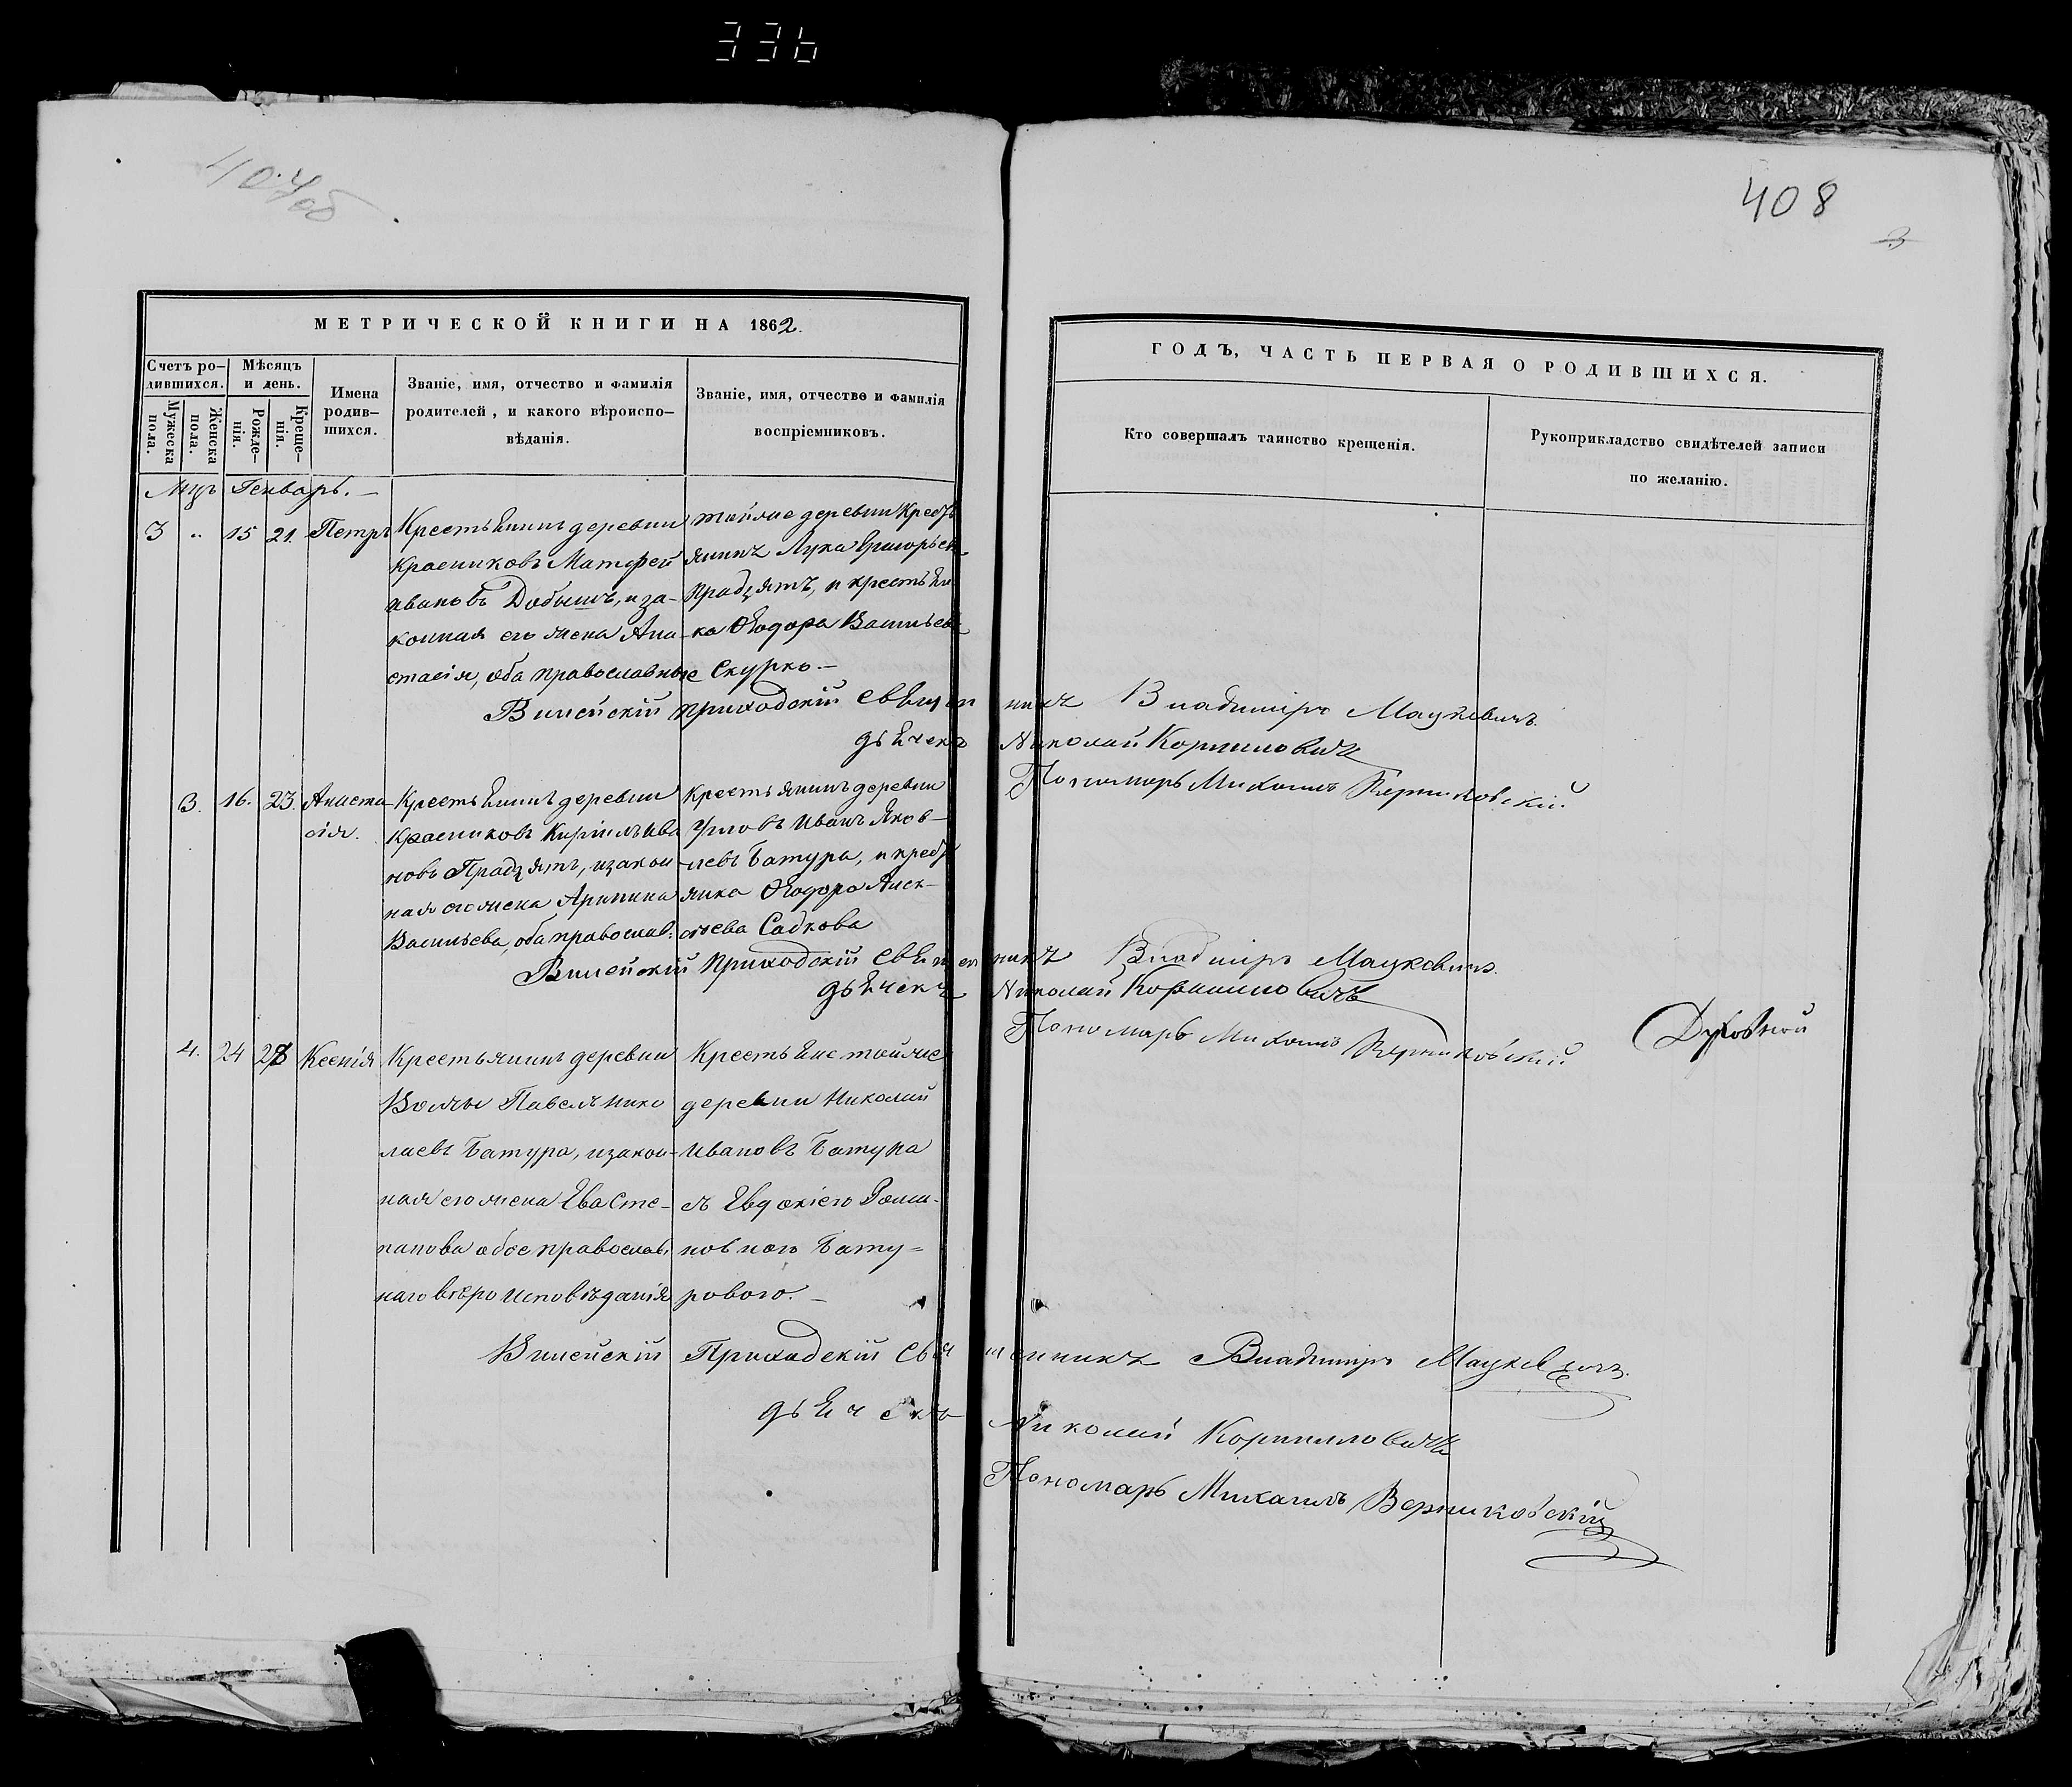 336
407об
408
МЕТРИЧЕСКОЙ КНИГИ НА 1862.
Счетъ ро-
дившихся.
Мѣсяцъ
и день.
Мужеска
пола.
Женска
пола.
Рожде-
нія.
Креще-
нія.
Имена
родив-
шихся.
Званіе, имя, отчество и фамилія
родителей, и какого вѣроиспо-
вѣданія.
Званіе, имя, отчество и фамилія
воспріемниковъ.
ГОДЪ, ЧАСТЬ ПЕРВАЯ О РОДИВШИХСЯ.
Кто совершалъ таинство крещенія.
Рукоприкладство свидѣтелей записи
по желанію.
Мцъ Генварь.
3 " 15 21. Петръ
Крестьянинъ деревни
Красниковъ Матфей
Ивановъ Добышъ, и за-
конная его жена Ана-
стасія, оба православные
тойже деревни Крестъ
янинъ Лука Григорьев
Прадзятъ, и крестьян
ка Ѳеодора Васильев
Скурко.
Вилейскій приходскій Священникъ Владиміръ Мацкевичъ.
дьячекъ Николай Корниловичъ
Пономарь Михаилъ Верниковскій.
3. 16. 23. Анаста
сія.
Крестьянинъ деревни
Красниковъ Кирилъ Ива
новъ Прадзятъ, и закон
ная его жена Арипина
Васильева, оба православ:
Крестьянинъ деревни
Угловъ Иванъ Яков-
левъ Батура, и крест
янка Ѳеодора Алек-
сѣева Садкова
Вилейскій Приходскій Священникъ Владиміръ Мацкевичъ.
дьячекъ Николай Корниловичъ
Пономарь Михаилъ Верниковскій.
4. 24 28 Ксенія
Крестьянинъ деревни
Волчы Павелъ Нико
лаевъ Батура, и закон-
ная его жена Ева Сте-
панова обое православ,
наго вѣроисповѣданія
Крестьяне тойже
деревни Николай
Ивановъ Батура
съ Евдокіею Рома-
новною Бату-
ровою.
Вилейскій Приходскій Священникъ Владиміръ Мацкевичъ.
дьячекъ Николай Корниловичъ
Пономарь Михаилъ Верниковскій
Духовной